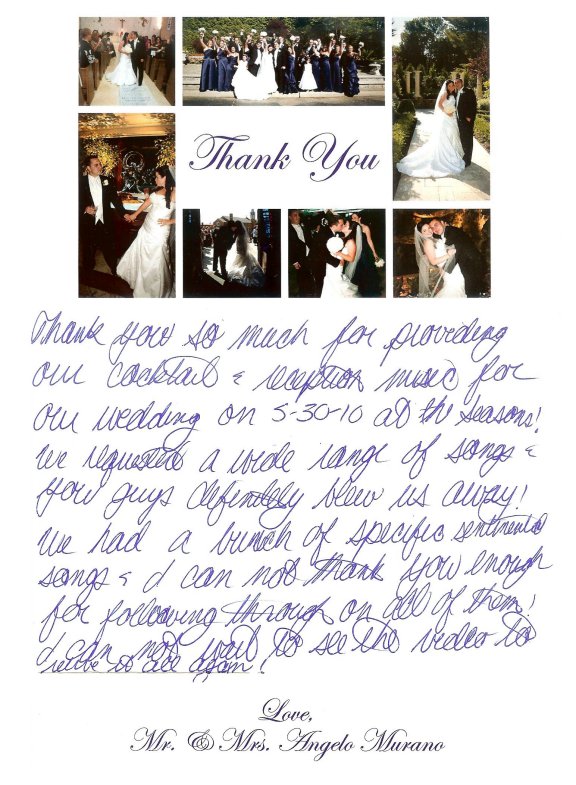 Thank You
Thank you so much for providing
our cocktail & reception music for
our wedding on 5-30-10 at the Seasons!
We requested a wide range of songs &
you guys definitely blew us away!
We had a bunch of specific sentimental
songs & I can not thank you enough
for following through on all of them!
I can not wait to see the video to
relive it all again!
Love,
Mr. & Mrs. Angelo Murano